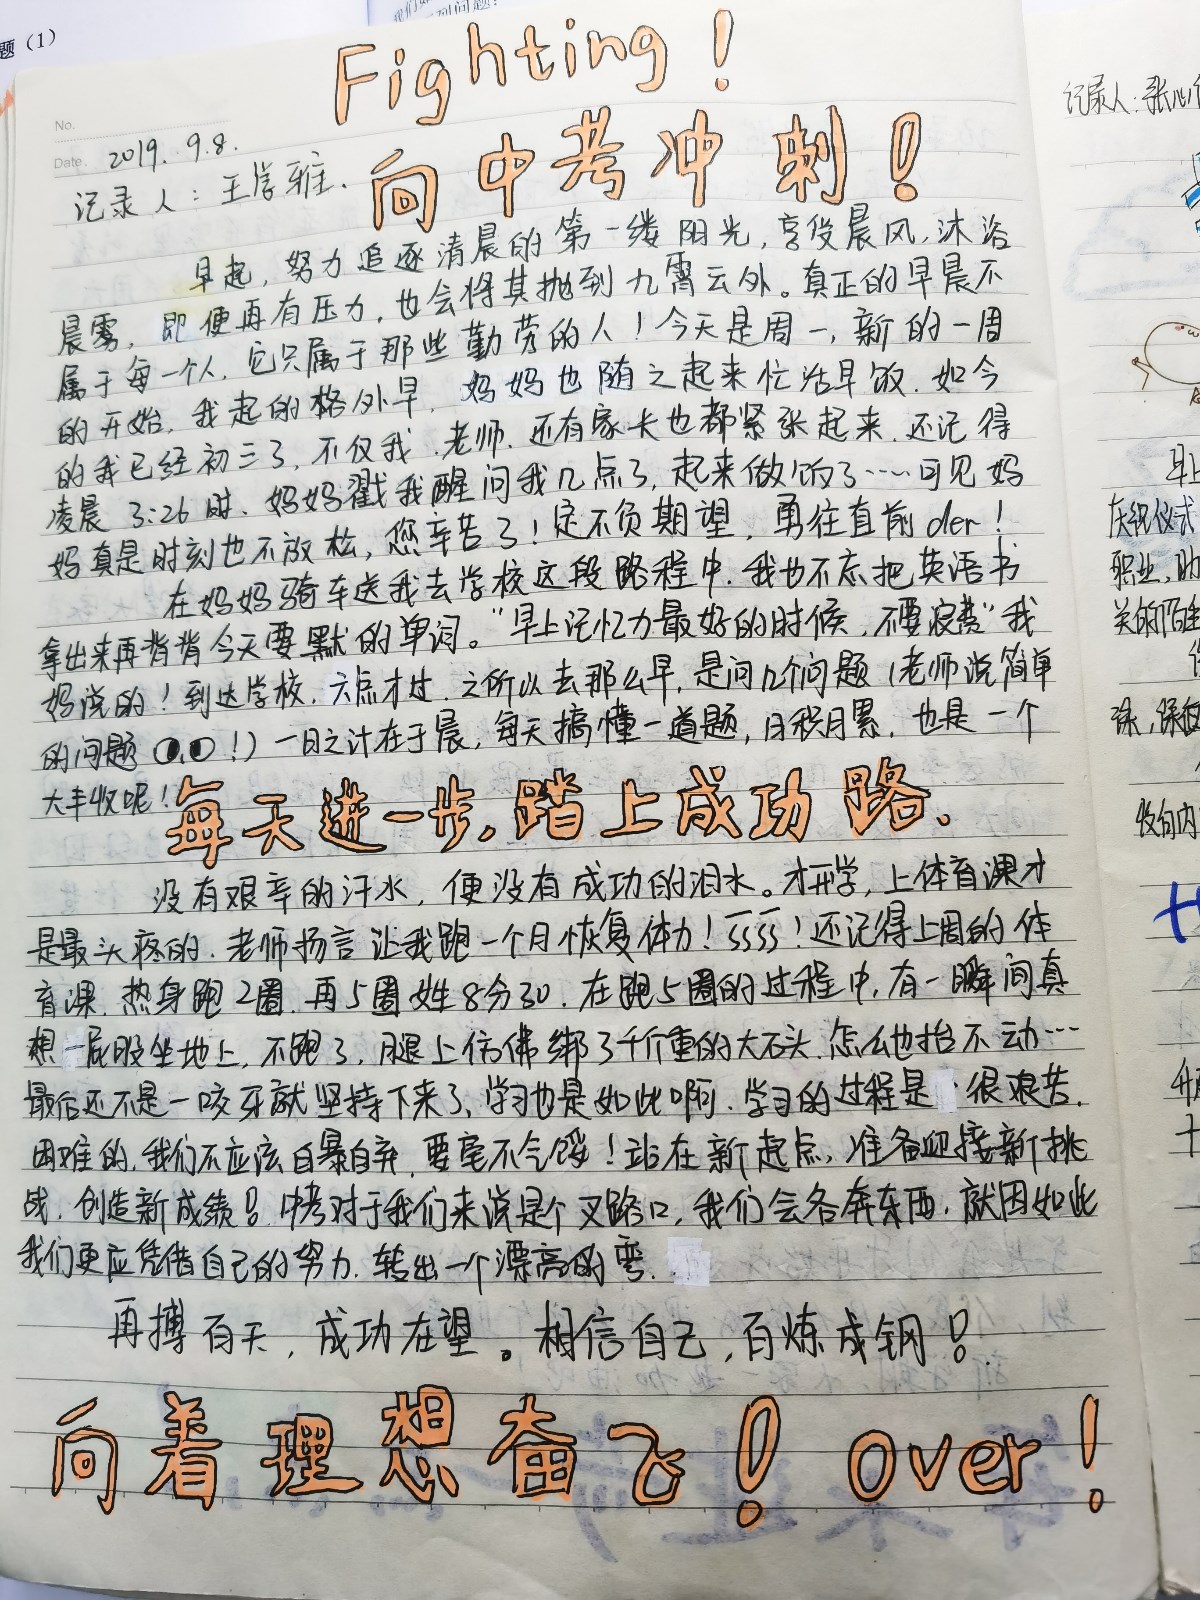 题（1）
Fighting！
No.
Date. 2019. 9.8.
向中考冲刺！
记录人：王学雅.
早起，努力追逐清晨的第一缕阳光，享受晨风，沐浴
晨雾，即便再有压力，也会将其抛到九霄云外。真正的早晨不
属于每一个人，它只属于那些勤劳的人！今天是周一，新的一周
的开始，我起的格外早，妈妈也随之起来忙活早饭，如今
的我已经初三了，不仅我，老师，还有家长也都紧张起来，还记得
凌晨3:26时，妈妈戳我醒问我几点了，起来做饭了……可见妈
妈真是时刻也不放松，您辛苦了！定不负期望，勇往直前der！
在妈妈骑车送我去学校这段路程中，我也不忘把英语书
拿出来再背背今天要默的单词。“早上记忆力最好的时候，不要浪费”我
妈说的！到达学校，六点才过，之所以去那么早，是问几个问题（老师说简单
的问题！）一日之计在于晨，每天搞懂一道题，日积月累，也是一个
大丰收呢！
每天进一步，踏上成功路.
没有艰辛的汗水，便没有成功的泪水。才开学，上体育课才
是最头疼的，老师扬言让我跑一个月恢复体力！5555！还记得上周的体
育课，热身跑2圈，再5圈姓8分30，在跑5圈的过程中，有一瞬间真
想一屁股坐地上，不跑了，腿上仿佛绑了千斤重的大石头，怎么也抬不动…
最后还不是一咬牙就坚持下来了，学习也是如此啊，学习的过程是很艰苦，
困难的，我们不应该自暴自弃，要毫不气馁！站在新起点，准备迎接新挑
战，创造新成绩！中考对于我们来说是个叉路口，我们会各奔东西，就因如此
我们更应凭借自己的努力，转出一个漂亮的弯.
再搏百天，成功在望。相信自己，百炼成钢！
向着理想奋飞！over！
记录人：张心
早上
庆祝仪式
职业，助